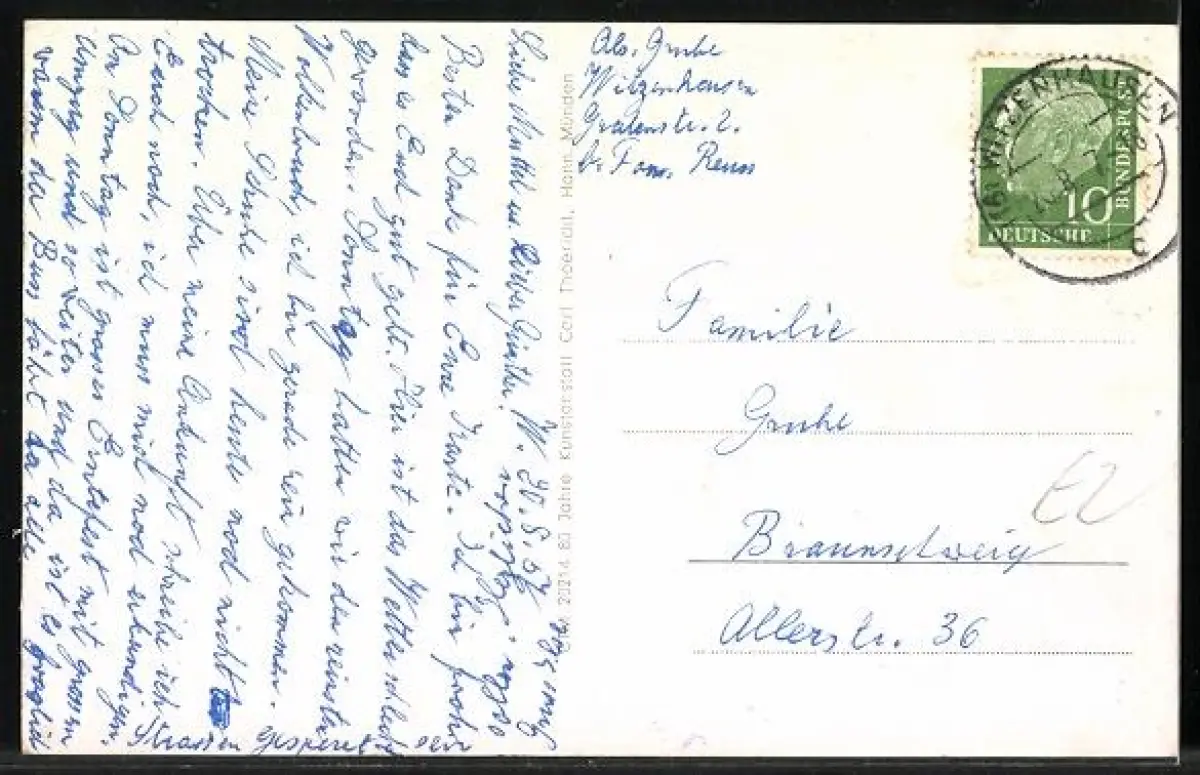 Abs. Grube
Witzenhausen
Grabenstr. 2.
b. Fam. Reuss
WITZENHAUSEN
10
DEUTSCHE
BUNDESPOST
Familie
Grube
Braunschweig
Allerstr. 36
EZ
20214 80 Jahre Kunstanstalt Carl Thoericht, Hann Münden
W. 20.8.57
Liebe Mutti u. lieber Günther.
Besten Dank für Eure Karte. Ich bin froh
das es Euch gut geht. Hier ist das Wetter schlecht
geworden. Sonntag hatten wir den reinsten
Wolkenbruch, ich bin gerade rein gekommen.
Meine Schuhe sind heute noch nicht
trocken. Über meine Ankunft schreibe ich
Euch noch, ich muss mich noch erkundigen.
An Sonntag ist grosses Erntefest mit grossem
Umzug und so weiter und da ist es fraglich
wann der Bus fährt da alle
Strassen gesperrt sein